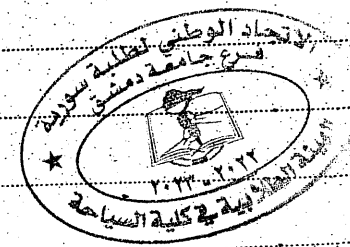 الاتحاد الوطني لطلبة سورية
فرع جامعة دمشق
٢٠٢٢ - ٢٠٢٣
الهيئة الطلابية في كلية السياحة